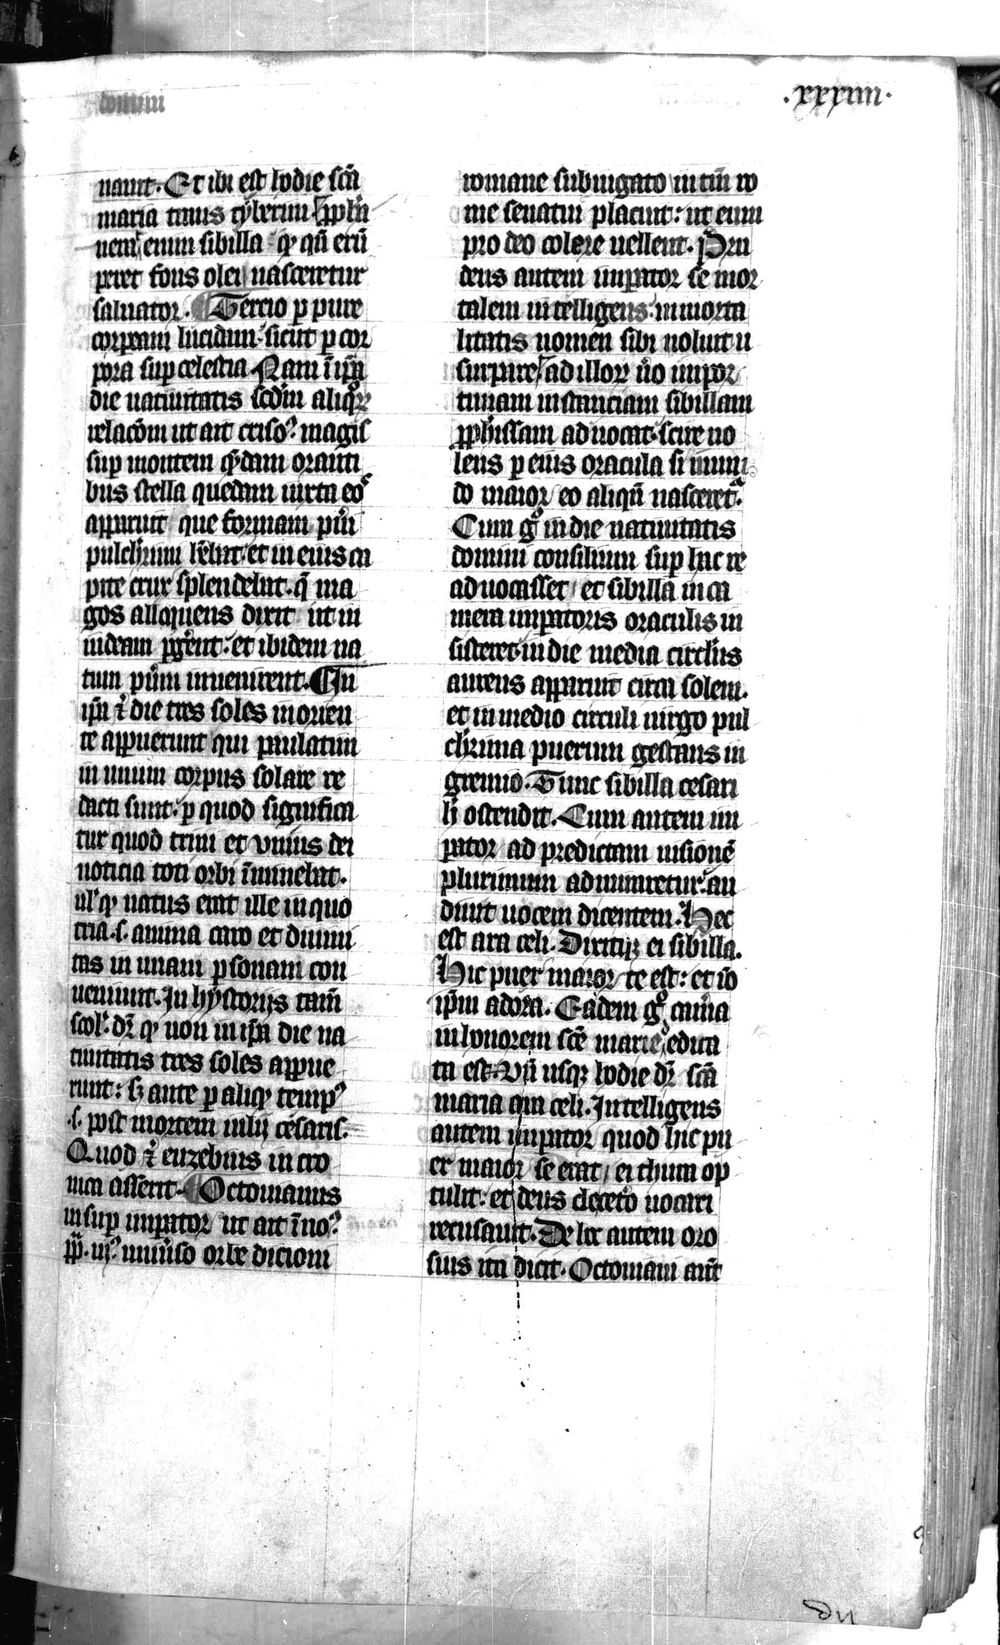 domini
.xxxiiii.
nauit. Et ibi est hodie sc̄a
maria trans tyberim. Ppha
uerat enim sibilla q̄ qn̄ eru
peret fons olei nasceretur
saluator. Tercio p pure
corpeam lucidam. sicut p cor
pora sup celestia Nam ī ip̄a
die natiuitatis scd̄m aliquor̄
relacōm ut ait criso? magis
sup montem q̄dam oranti
bus stella quedam iuxta eos
apparuit que formam pūi
pulcherimi h̄ebat et in eius ca
pite crux splendebat. q̄ ma
gos alloquens dixit ut in
iudeam pgēnt: et ibidem na
tum pūm inuenirent. In
ip̄a ⁊ die tres soles in orien
te appuerunt qui paulatim
in unum corpus solare re
dacti sunt. p quod significa
tur quod trini et vnius dei
noticia toti orbi īminebat.
ul' q̄ natus erat ille in quo
tria .s. anima caro et diuini
tas in unam psonam con
ueniunt. In hystorijs tam̄
scol'. dr̄ q̄ non in ip̄a die na
tiuitatis tres soles appue
runt: s; ante p aliq̄ temp?
.s. post mortem iulij cesaris.
Quod ⁊ euzebius in cro
nica asserit. Octouianus
insup impator ut ait īno?
pp̄. iij? uniūso orbe dicioni
romane subiugato in tm̄ ro
me senatui placuit: ut eum
pro deo colere uellent. Pru
dens autem impator se mor
talem intelligens. inmorta
litatis nomen sibi noluit u
surpare ad illor̄ ūo inpor
tunam instanciam sibillam
pphissam aduocat. scire uo
lens p eius oracula si in mun
do maior eo aliqn̄ nasceret.
Cum g° in die natiuitatis
domini consilium sup hac re
aduocasset et sibilla in ca
mera impatoris oraculis in
sisteret. in die media circlus
aureus apparuit circa solem.
et in medio circuli uirgo pul
cherima puerum gestans in
gremio. Tunc sibilla cesari
h̄ ostendit. Cum autem im
pator ad predictam uisionē
plurimum admiraretur. au
diuit uocem dicentem. Hec
est ara celi. Dixitq; ei sibilla.
Hic puer maior te est: et iō
ip̄m adora. Eadem g° cam̄a
in honorem sc̄e marie dedica
ta est. Vn̄ usq; hodie dr̄ sc̄a
maria ara celi. Intelligens
autem impator quod hic pu
er maior se erat ei thura op
tulit: et deus de cetō uocari
recusauit. De hc autem oro
sius ita dicit. Octouiani aūt